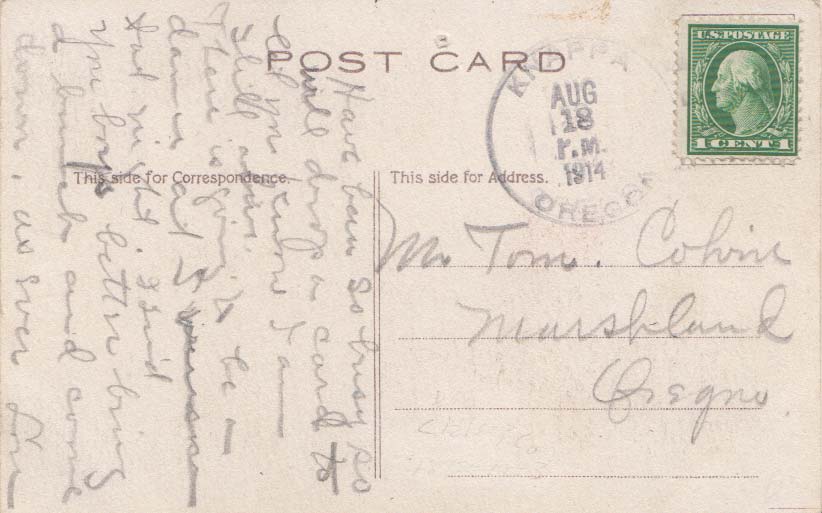 POST CARD
This side for Correspondence.
This side for Address.
U.S. POSTAGE
1 CENT 1
KNAPPA
AUG
18
P.M.
1914
OREGON
Mr Tom. Colvin
Marshland
Oregon.
Have been so busy so
will drop a card to
let you know I am
still alive.
There is going to be a
dance at
Sat night and
you boys better bring
a bunch and come
down, as ever